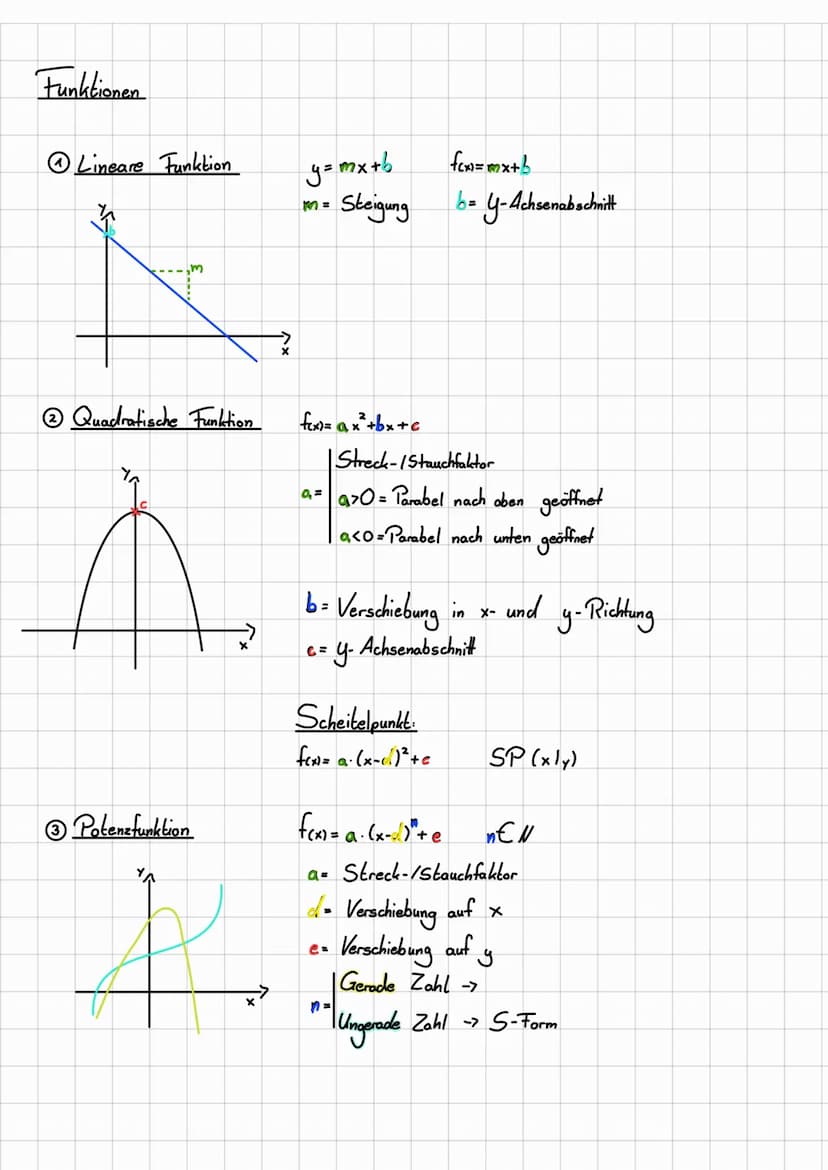 Funktionen
① Lineare Funktion
y = mx + b
f(x) = mx + b
m = Steigung
b = y-Achsenabschnitt
y
b
m
x
② Quadratische Funktion
f(x) = ax² + bx + c
a =
Streck-/Stauchfaktor
a>0 = Parabel nach oben geöffnet
a<0 = Parabel nach unten geöffnet
y
c
x
b = Verschiebung in x- und y-Richtung
c = y-Achsenabschnitt
Scheitelpunkt:
f(x) = a·(x-d)² + e
SP (x|y)
③ Potenzfunktion
f(x) = a·(x-d)ⁿ + e
n∈N
a = Streck-/Stauchfaktor
d = Verschiebung auf x
e = Verschiebung auf y
n =
Gerade Zahl →
Ungerade Zahl → S-Form
y
x